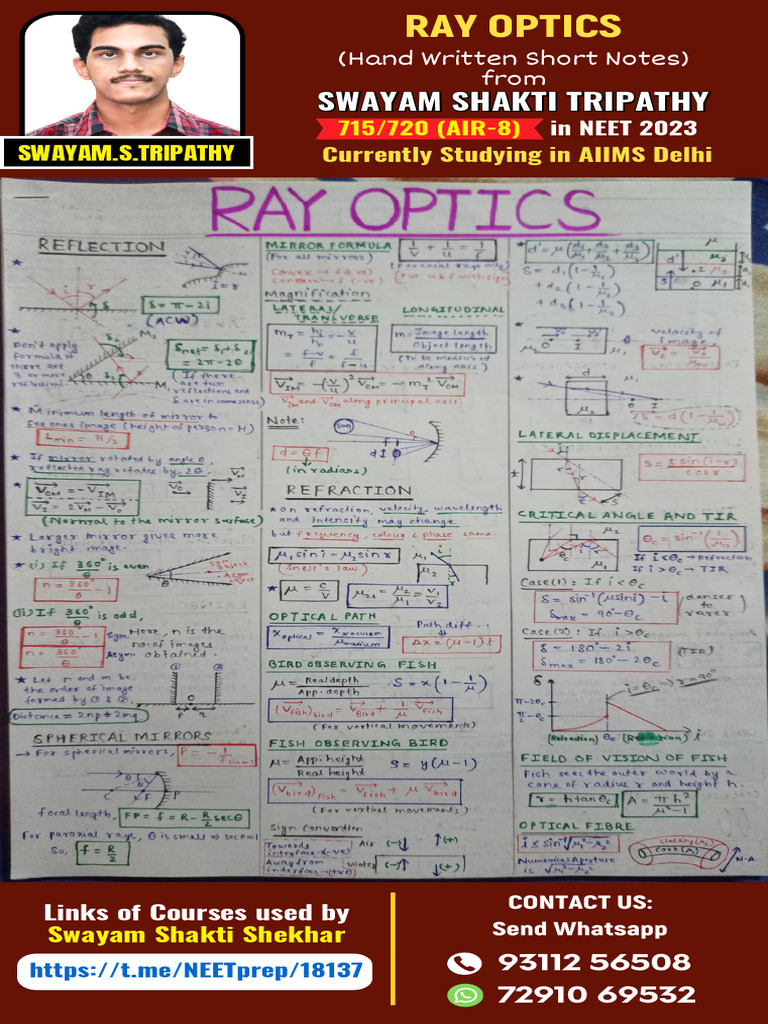 RAY OPTICS
(Hand Written Short Notes)
from
SWAYAM SHAKTI TRIPATHY
715/720 (AIR-8) in NEET 2023
Currently Studying in AIIMS Delhi
SWAYAM.S.TRIPATHY
RAY OPTICS
REFLECTION
i = r
δ = π - 2i
(ACW)
Don't apply
formula if
there are
3 or more
reflections
δnet = δ₁ + δ₂
= 2π - 2θ
(If there
are two
reflections and
δ are in same sense)
★ Minimum length of mirror to
see ones image (height of person = H)
Lmin = H/2
★ If mirror rotated by angle θ
reflected ray rotates by 2θ.
(Normal to the mirror surface)
★ Larger mirror gives more
bright image.
★ (i) If 360°/θ is even
n = 360°/θ - 1
(ii) If 360°/θ is odd,
n = 360°/θ - 1 Sym.
n = 360°/θ Asym.
Here, n is the
no. of images
obtained.
★ Let n and m be
the order of image
formed by ① & ②,
Distance = 2np + 2mq
SPHERICAL MIRRORS
→ For spherical mirrors, P = -1/f(in m)
focal length, FP = f = R - R/2 secθ
For paraxial rays, θ is small ⇒ secθ ≈ 1
So, f = R/2
MIRROR FORMULA
1/v + 1/u = 1/f
(For all mirrors)
Convex → f (+ve)
Concave → f (-ve)
Magnification
LATERAL/
TRANSVERSE
mT = hi/ho = -v/u
= f-v/f = f/f-u
LONGITUDINAL
m = Image length/Object length
(To be measured
along axis)
VIM = -(v/u)² VOM = -mT² VOM
VIM and VOM along principal axis.
Note:
Sun
d = θf
(in radians)
REFRACTION
★ On refraction, velocity, wavelength
and intensity may change
but frequency, colour & phase same.
μ₁ sin i = μ₂ sin r
(Snell's law)
★ μ = c/v
μ₂₁ = μ₂/μ₁ = v₁/v₂
OPTICAL PATH
xoptical = xvacuum/μmedium
Path diff.
Δx = (μ-1)t
BIRD OBSERVING FISH
μ = Real depth/App. depth
S = x(1 - 1/μ)
(Vfish)bird = VBird + 1/μ Vfish
(For vertical movements)
FISH OBSERVING BIRD
μ = App. height/Real height
S = y(μ-1)
(Vbird)fish = Vfish + μ Vbird
(For vertical movements)
Sign Convention
Towards
interface → (-ve)
Away from
interface → (+ve)
Air (-)↓ ↑(+)
Water (-)↑ ↓(+)
★ d' = μ(d₁/μ₁ + d₂/μ₂ + d₃/μ₃)
S = d₁(1 - 1/μ₁)
+ d₂(1 - 1/μ₂)
+ d₃(1 - 1/μ₃)
velocity of
image,
S = d(1 - 1/μrel)
LATERAL DISPLACEMENT
S = t sin(i-r)/cos r
CRITICAL ANGLE AND TIR
θc = sin⁻¹(1/μrel)
If i < θc → Refraction
If i > θc → TIR
Case(1): If i < θc
δ = sin⁻¹(μ sin i) - i
δmax = 90° - θc
(denser
to
rarer)
Case(2): If i > θc
δ = 180° - 2i
δmax = 180° - 2θc
(TIR)
i = θc → r = 90°
π - 2θc
π/2 - θc
(Refraction) θc
FIELD OF VISION OF FISH
Fish sees the outer world by a
cone of radius r and height h.
r = h tan θc
A = πh²/μ²-1
OPTICAL FIBRE
i ≤ sin⁻¹√μ₁² - μ₂²
Numerical Aperture
is √μ₁² - μ₂²
cladding (μ₂)
core (μ₁)
N.A.
Links of Courses used by
Swayam Shakti Shekhar
https://t.me/NEETprep/18137
CONTACT US:
Send Whatsapp
93112 56508
72910 69532